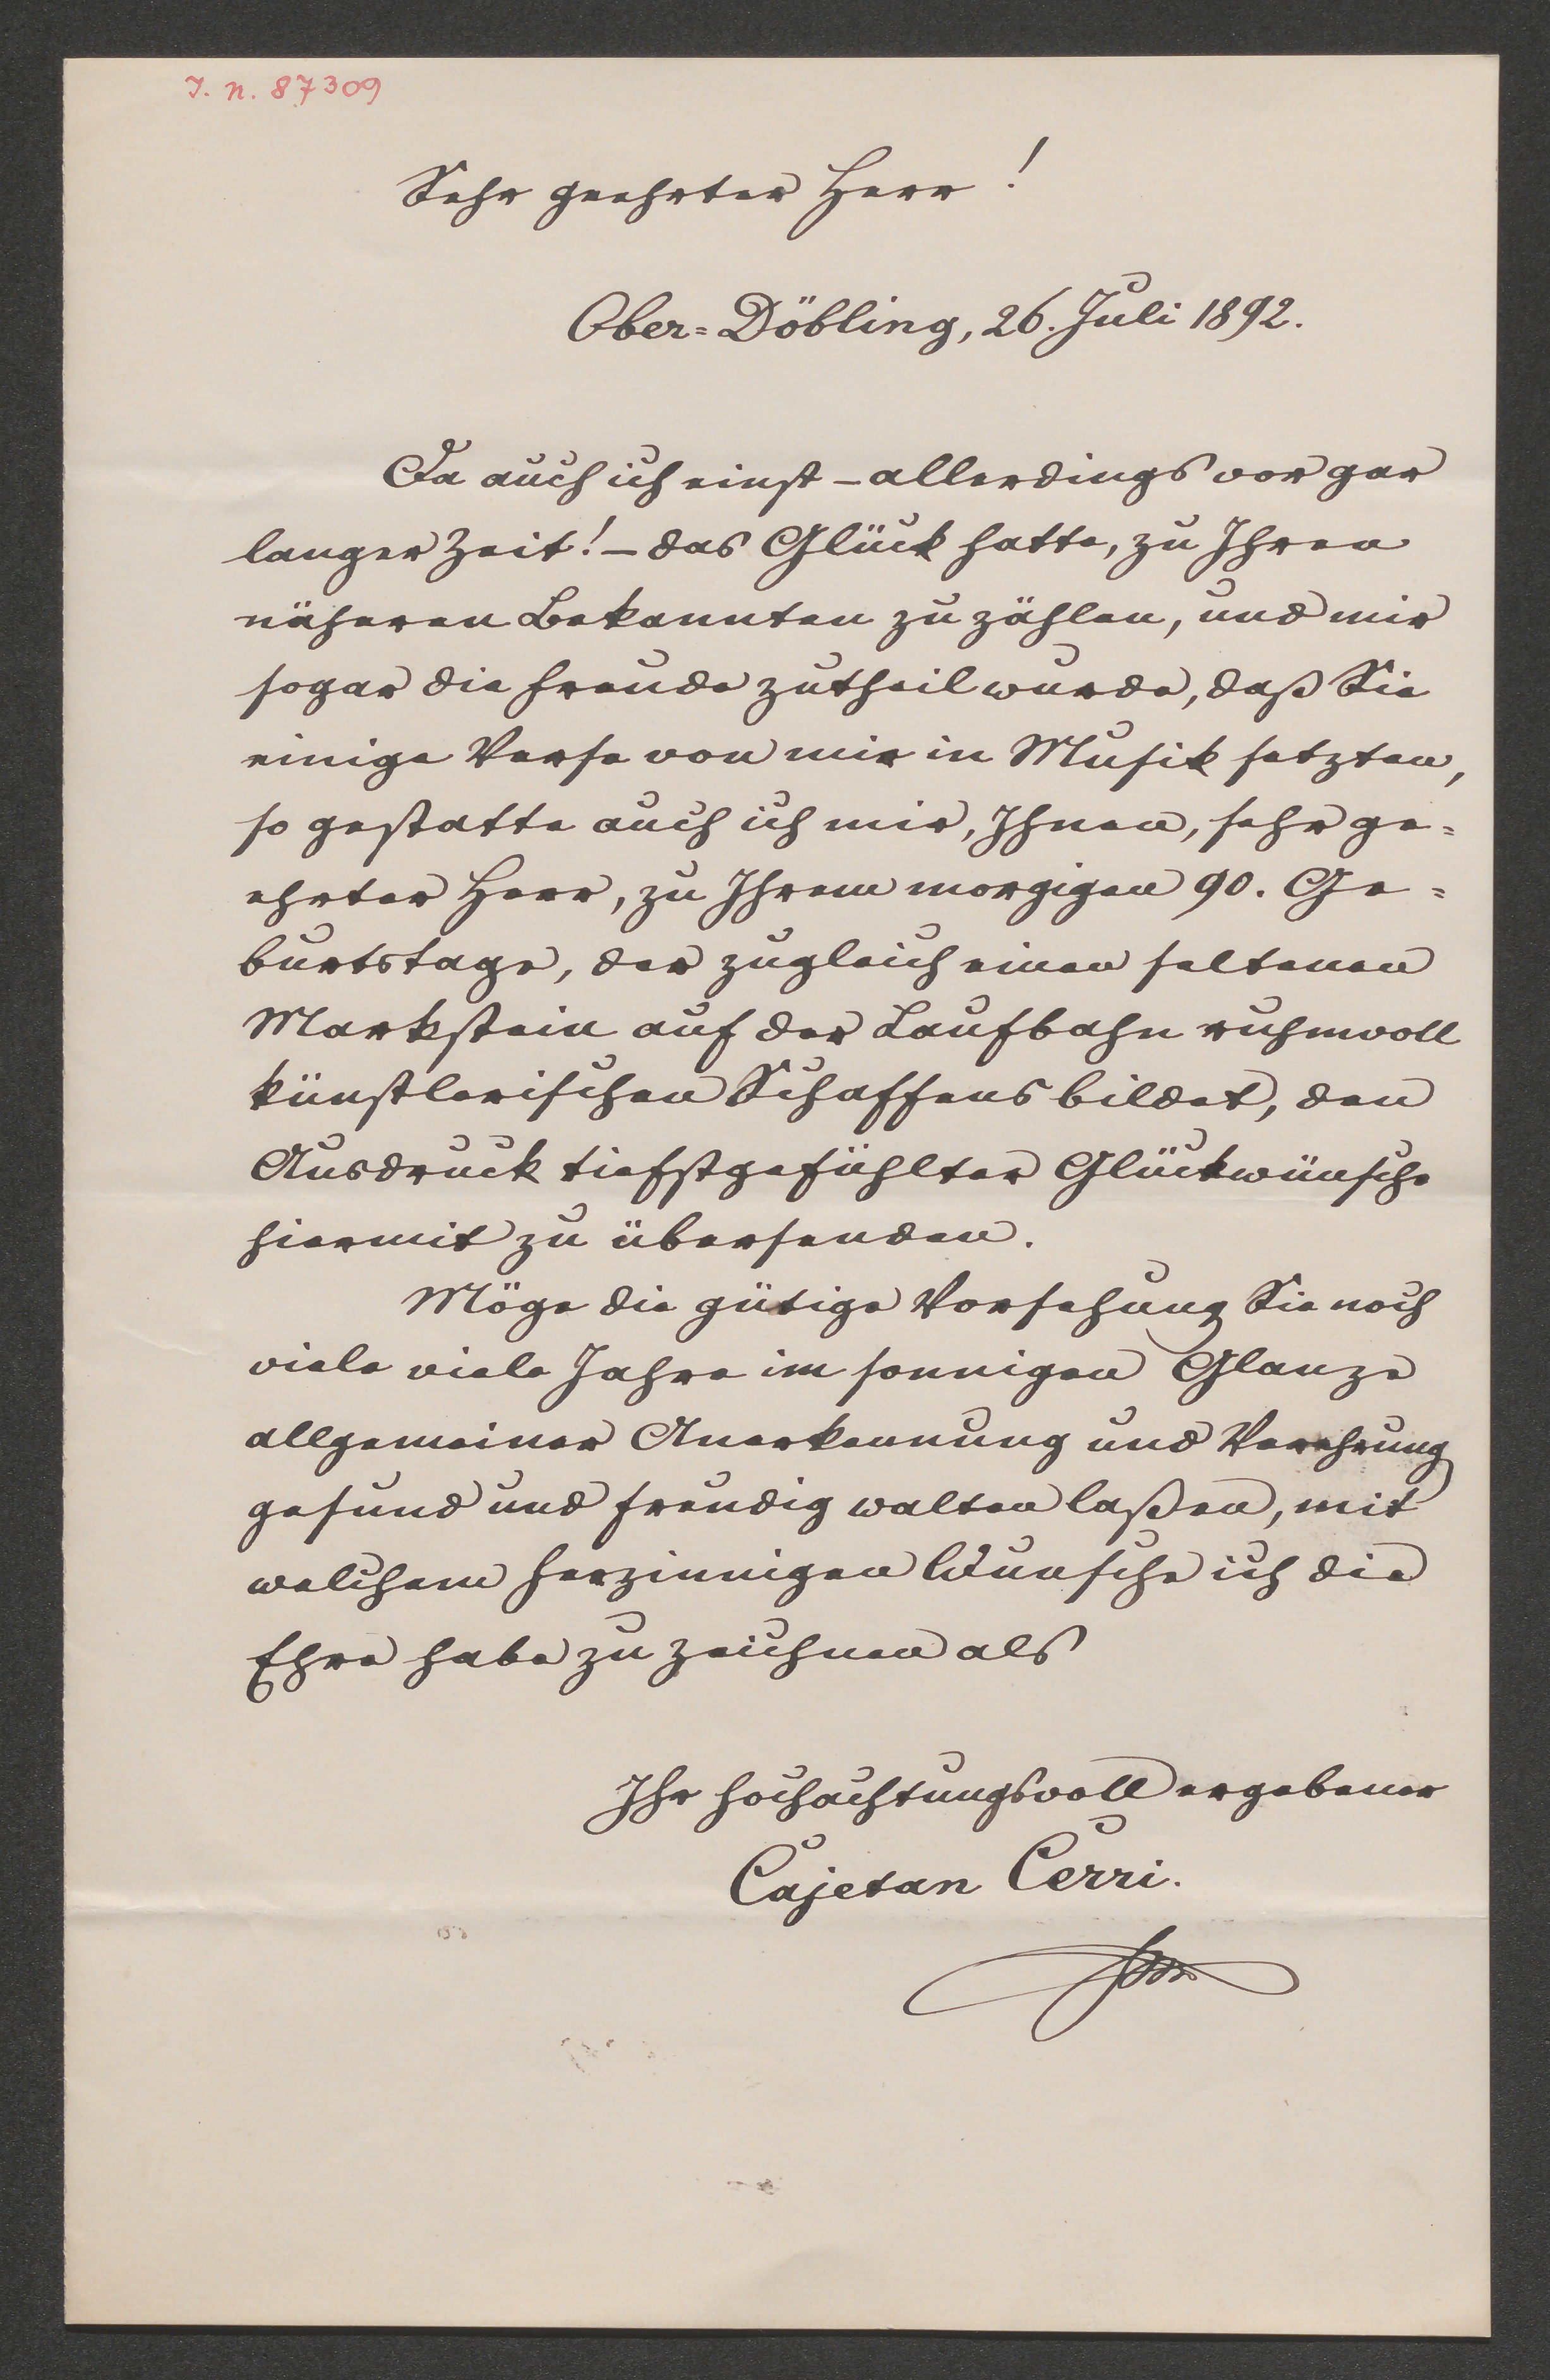 I. N. 87309
Sehr geehrter Herr!
Ober=Döbling, 26. Juli 1892.
Da auch ich einst – allerdings vor gar
langer Zeit! – das Glück hatte, zu Ihren
näheren Bekannten zu zählen, und mir
sogar die Freude zutheil wurde, daß Sie
einige Verse von mir in Musik setzten,
so gestatte auch ich mir, Ihnen, sehr ge=
ehrter Herr, zu Ihrem morgigen 90. Ge=
burtstage, der zugleich einen seltenen
Markstein auf der Laufbahn ruhmvoll
künstlerischen Schaffens bildet, den
Ausdruck tiefstgefühlter Glückwünsche
hiermit zu übersenden.
Möge die gütige Vorsehung Sie noch
viele viele Jahre im sonnigen Glanze
allgemeiner Anerkennung und Verehrung
gesund und freudig walten laßen, mit
welchem herzinnigen Wunsche ich die
Ehre habe zu zeichnen als
Ihr hochachtungsvoll ergebener
Cajetan Cerri.